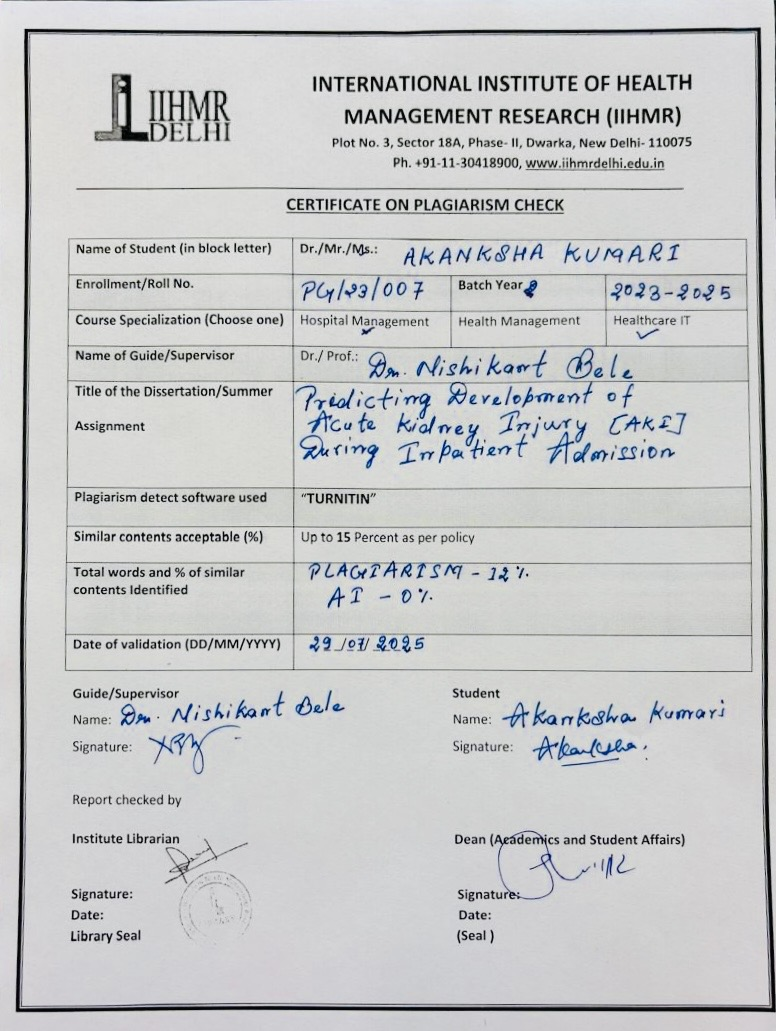 IIHMR
DELHI
INTERNATIONAL INSTITUTE OF HEALTH
MANAGEMENT RESEARCH (IIHMR)
Plot No. 3, Sector 18A, Phase- II, Dwarka, New Delhi- 110075
Ph. +91-11-30418900, www.iihmrdelhi.edu.in
CERTIFICATE ON PLAGIARISM CHECK
Name of Student (in block letter) Dr./Mr./Ms.: AKANKSHA KUMARI
Enrollment/Roll No. PG/23/007 Batch Year 2023-2025
Course Specialization (Choose one) Hospital Management Health Management Healthcare IT
Name of Guide/Supervisor Dr./ Prof.: Dr. Nishikant Bele
Title of the Dissertation/Summer
Assignment
Predicting Development of
Acute Kidney Injury [AKI]
During Inpatient Admission
Plagiarism detect software used "TURNITIN"
Similar contents acceptable (%) Up to 15 Percent as per policy
Total words and % of similar
contents Identified
PLAGIARISM - 12%
AI - 0%
Date of validation (DD/MM/YYYY) 29/07/2025
Guide/Supervisor
Name: Dr. Nishikant Bele
Signature:
Student
Name: Akanksha Kumari
Signature: Akanksha
Report checked by
Institute Librarian
Signature:
Date:
Library Seal
Dean (Academics and Student Affairs)
Signature:
Date:
(Seal )